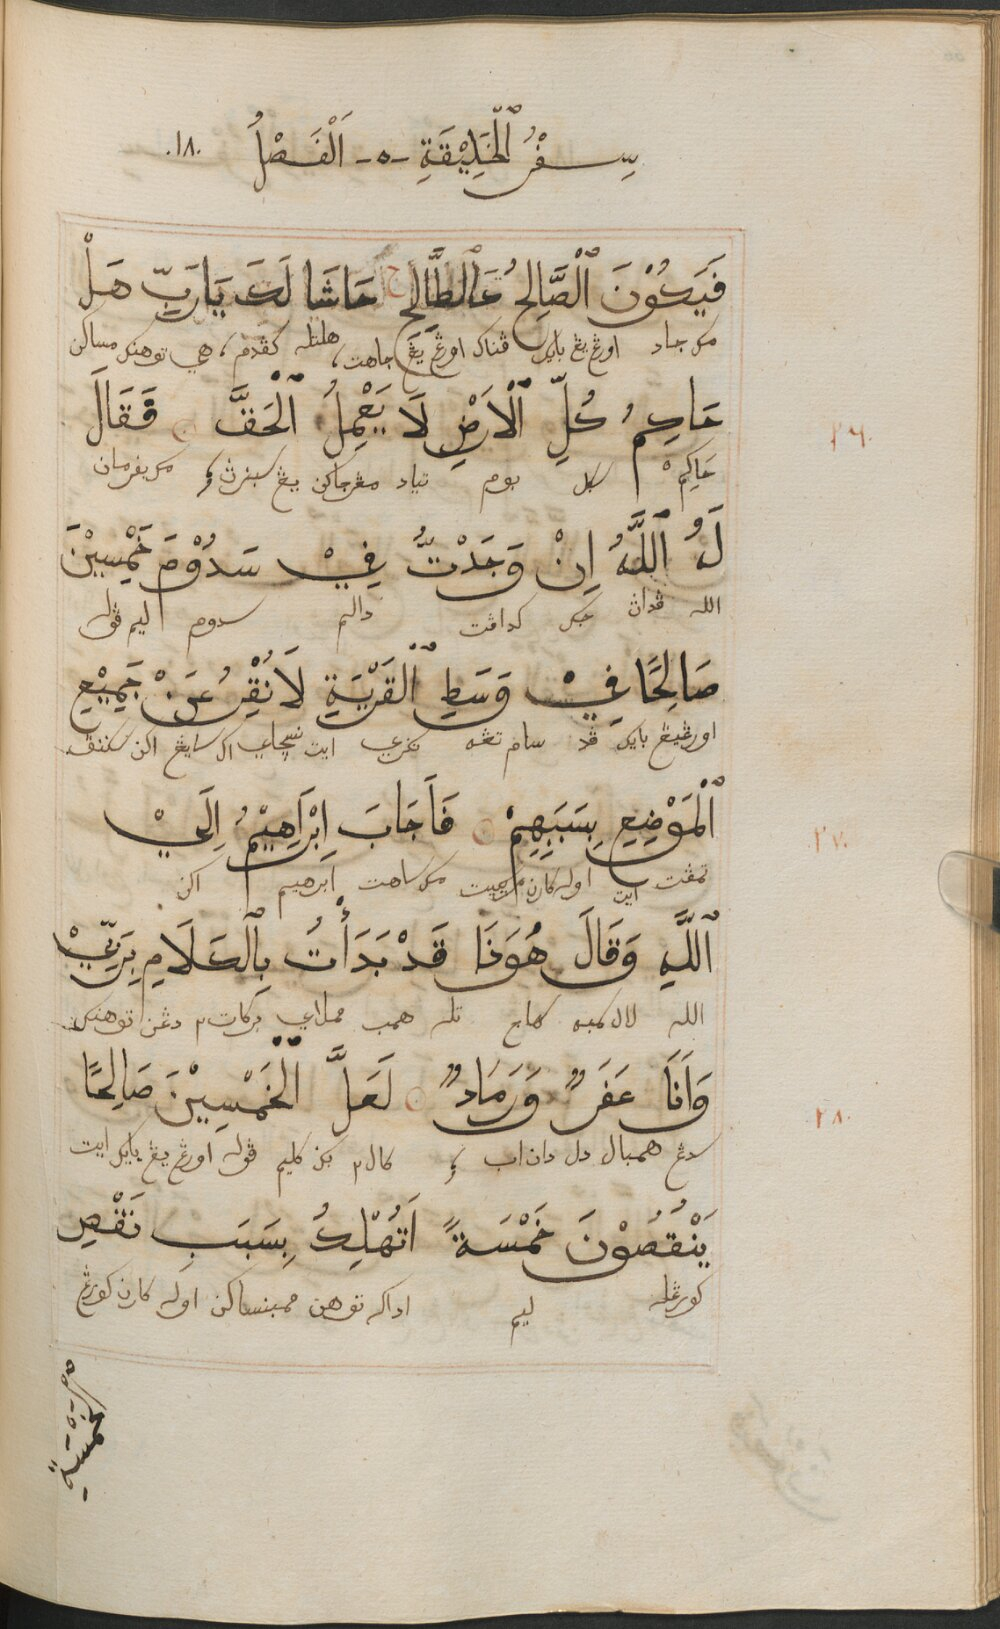 سِفْرُ ٱلْخَلِيْقَةِ -٥- اَلْفَصْلُ .١٨.
فَيَكُوْنَ ٱلْصَّالِحُ كَٱلطَّالِحِ حَاشَا لَكَ يَارَبِّ هَلْ
مک جاد اورڠ يڠ بايک ڤناک اورڠ يڠ جاهت، هلتله کڤدم، هي توهنک مساکن
حَاكِمُ كُلِّ ٱلْاَرْضِ لَا يَعْمِلُ ٱلْحَقَّ فَقَالَ
حاکم سکل بوم تياد مڠرجاکن يڠ سبنرڽ مک برفرمان
٢٦.
لَهُ ٱللَّهُ اِنْ وَجَدْتُّ فِيْ سَدُوْمَ خَمْسِيْنَ
الله ڤداڽ جک کداڤت دالم سدوم ليم ڤوله
صَالِحًا فِيْ وَسَطِ ٱلْقَرْيَةِ لَانُقْفِرُ عَنْ جَمِيْعِ
اورڠيڠ بايک ڤد سام تڠه نکري ايت نسچاي اک سايڠ اکن سکنڤ
ٱلْمَوْضِعِ بِسَبَبِهِمْ فَاَجَابَ اِبْرَاهِيْمُ اِلَيْ
تمڤت ايت اوله کارن مک ساهت ابرهيم اکن
٢٧.
ٱللَّهِ وَقَالَ هُوَذَا قَدْ بَدَأْتُ بِٱلْكَلَامِ بِرَبِّيْ
الله لال کمبه تله همب ممولاي برکات٢ دڠن توهنک
وَاَنَا عَفَرٌ وَرَمَادٌ لَعَلَّ ٱلْخَمْسِيْنَ صَالِحًا
سدڠ همبال دل دان اب کال٢ کليم ڤوله اورڠ يڠ بايک ايت
٢٨.
يَنْقُصُوْنَ خَمْسَةً اَتُهْلِكُ بِسَبَبِ نَقْصِ
کورڠله ليم اداکه توهن ممبنساکن اوله کارن کورڠ
خَمْسَةٍ